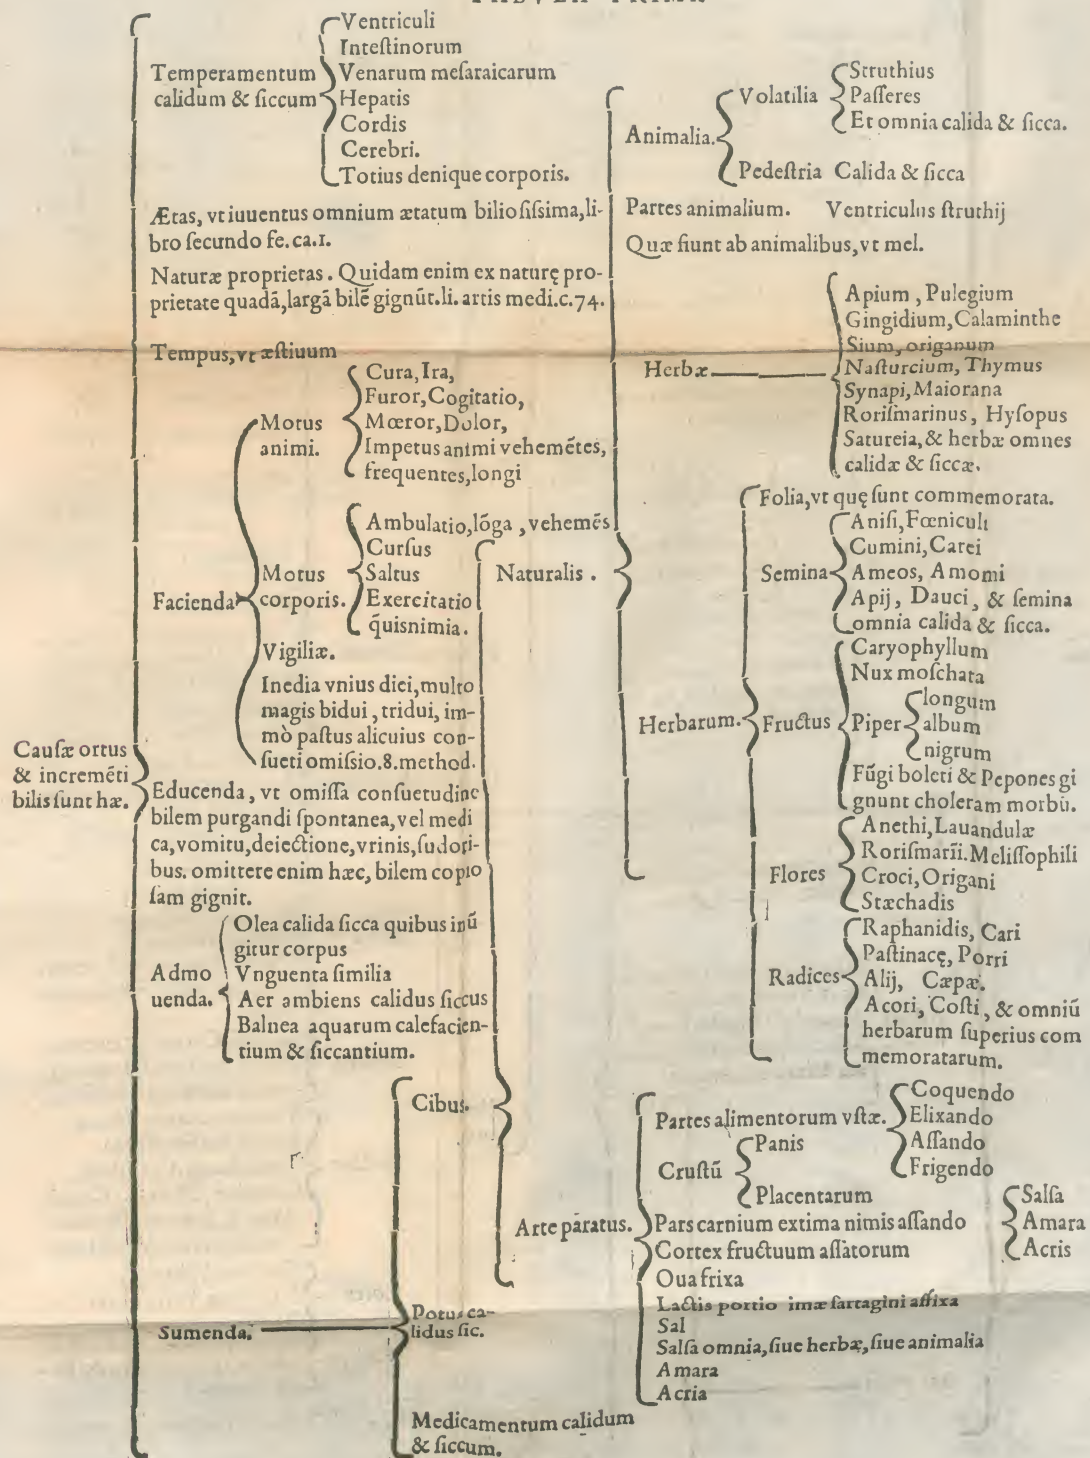 Cauſæ ortus
& incremēti
bilis ſunt hæ.
Temperamentum
calidum & ſiccum
Ventriculi
Inteſtinorum
Venarum meſaraicarum
Hepatis
Cordis
Cerebri.
Totius denique corporis.
Ætas, vt iuuentus omnium ætatum bilioſiſsima, li-
bro ſecundo fe. ca.1.
Naturæ proprietas. Quidam enim ex naturę pro-
prietate quadā, largā bilē gignūt. li. artis medi. c. 74.
Tempus, vt æſtiuum
Facienda
Motus
animi.
Cura, Ira,
Furor, Cogitatio,
Mœror, Dolor,
Impetus animi vehemētes,
frequentes, longi
Motus
corporis.
Ambulatio, lōga, vehemēs
Curſus
Saltus
Exercitatio
q̄uisnimia.
Vigiliæ.
Inedia vnius diei, multo
magis bidui, tridui, im-
mò paſtus alicuius con-
ſueti omiſsio. 8. method.
Educenda, vt omiſſa conſuetudine
bilem purgandi ſpontanea, vel medi
ca, vomitu, deiectione, vrinis, ſudori-
bus. omittere enim hæc, bilem copio
ſam gignit.
Admo
uenda.
Olea calida ſicca quibus inū
gitur corpus
Vnguenta ſimilia
Aer ambiens calidus ſiccus
Balnea aquarum calefacien-
tium & ſiccantium.
Sumenda.
Cibus.
Naturalis.
Animalia.
Volatilia
Struthius
Paſſeres
Et omnia calida & ſicca.
Pedeſtria Calida & ſicca
Partes animalium. Ventriculus ſtruthij
Quæ fiunt ab animalibus, vt mel.
Herbæ
Apium, Pulegium
Gingidium, Calaminthe
Sium, origanum
Naſturcium, Thymus
Synapi, Maiorana
Roriſmarinus, Hyſopus
Satureia, & herbæ omnes
calidæ & ſiccæ.
Herbarum.
Folia, vt quę ſunt commemorata.
Semina
Aniſi, Fœniculi
Cumini, Carei
Ameos, Amomi
Apij, Dauci, & ſemina
omnia calida & ſicca.
Fructus
Caryophyllum
Nux moſchata
Piper
longum
album
nigrum
Fūgi boleti & Pepones gi
gnunt choleram morbū.
Flores
Anethi, Lauandulæ
Roriſmarīi. Meliſſophili
Croci, Origani
Stæchadis
Radices
Raphanidis, Cari
Paſtinacę, Porri
Alij, Cæpæ.
Acori, Coſti, & omniū
herbarum ſuperius com
memoratarum.
Arte paratus.
Partes alimentorum vſtæ.
Coquendo
Elixando
Aſſando
Frigendo
Cruſtū
Panis
Placentarum
Pars carnium extima nimis aſſando
Cortex fructuum aſſatorum
Salſa
Amara
Acris
Oua frixa
Lactis portio imæ ſartagini affixa
Sal
Salſa omnia, ſiue herbæ, ſiue animalia
Amara
Acria
Potus ca-
lidus ſic.
Medicamentum calidum
& ſiccum.